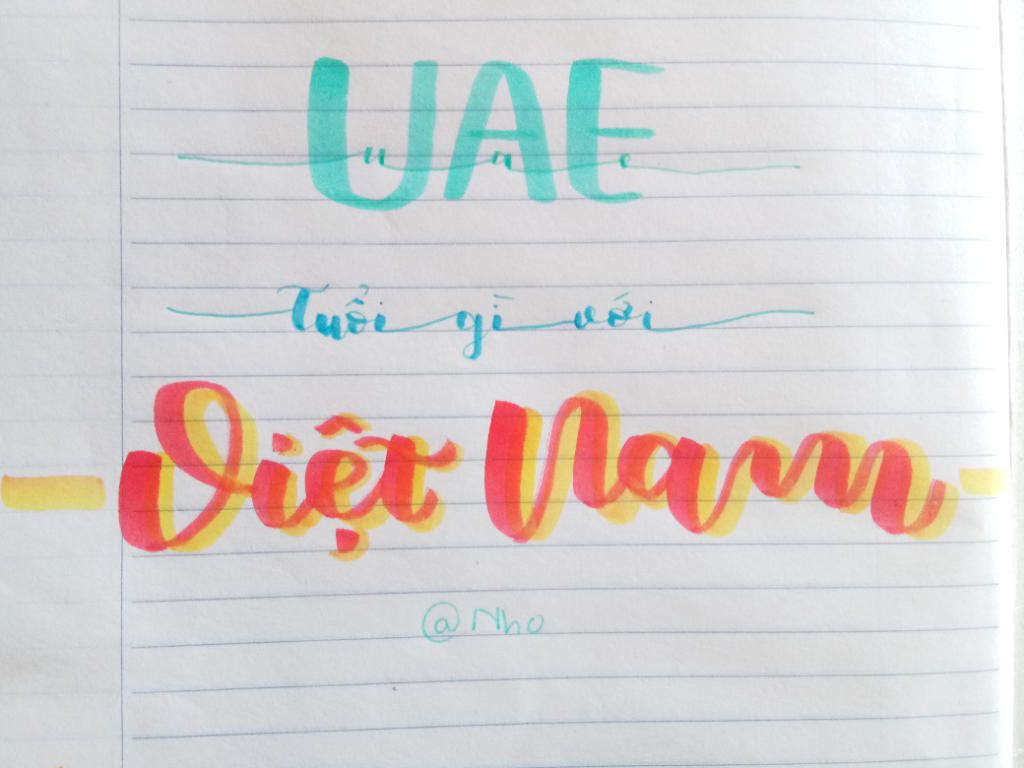 UAE
u a e
Tuổi gì với
Việt Nam
@Nho